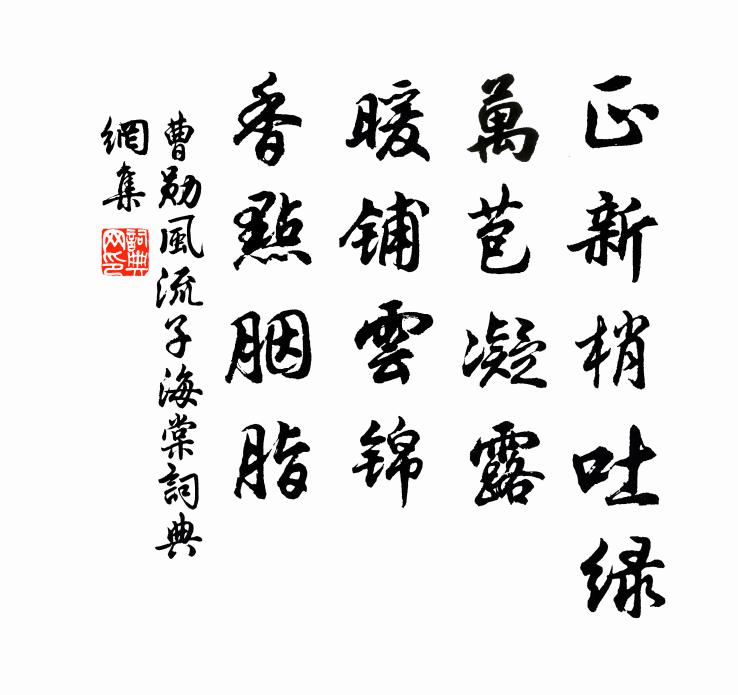 正新梢吐绿
萬苞凝露
暖铺雲锦
香點胭脂
曹勋風流子海棠詞典
網集
詞典网印